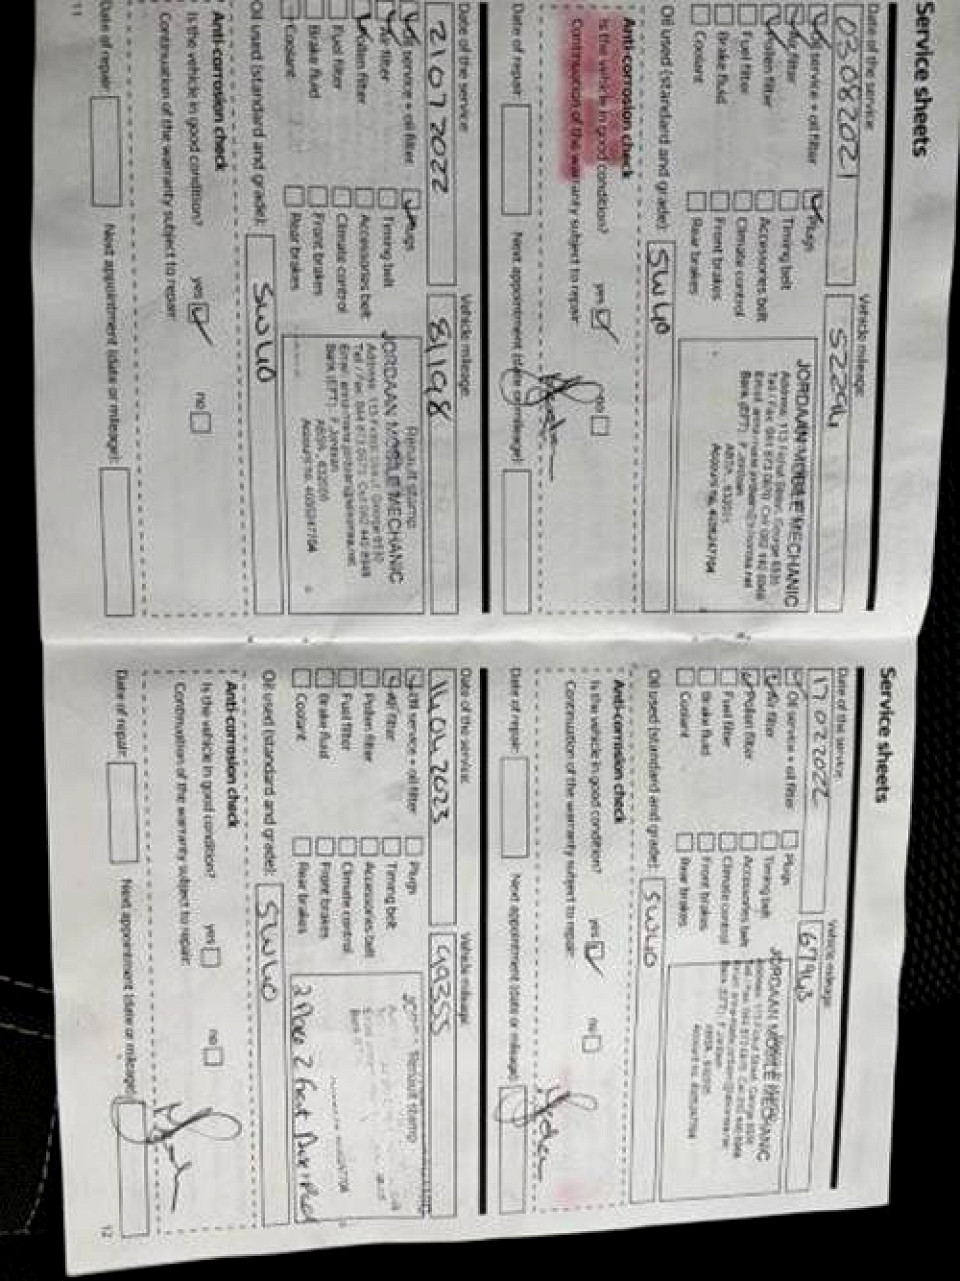 Service sheets
Date of the service:
Vehicle mileage:
03 08 2021
52294
Oil service + oil filter
Plugs
Air filter
Timing belt
Pollen filter
Accessories belt
Fuel filter
Climate control
Brake fluid
Front brakes
Coolant
Rear brakes
JORDAAN MOBILE MECHANIC
Oil used (standard and grade):
5W40
Anti-corrosion check
Is the vehicle in good condition?
yes
no
Continuation of the warranty subject to repair:
Date of repair:
Next appointment (date or mileage):
Date of the service:
Vehicle mileage:
21 07 2022
81198
Oil service + oil filter
Plugs
Air filter
Timing belt
Pollen filter
Accessories belt
Fuel filter
Climate control
Brake fluid
Front brakes
Coolant
Rear brakes
Renault stamp
JORDAAN MOBILE MECHANIC
Oil used (standard and grade):
5W40
Anti-corrosion check
Is the vehicle in good condition?
yes
no
Continuation of the warranty subject to repair:
Date of repair:
Next appointment (date or mileage):
11
Service sheets
Date of the service:
Vehicle mileage:
17 02 2022
67943
Oil service + oil filter
Plugs
Air filter
Timing belt
Pollen filter
Accessories belt
Fuel filter
Climate control
Brake fluid
Front brakes
Coolant
Rear brakes
JORDAAN MOBILE MECHANIC
Oil used (standard and grade):
5W40
Anti-corrosion check
Is the vehicle in good condition?
yes
no
Continuation of the warranty subject to repair:
Date of repair:
Next appointment (date or mileage):
Date of the service:
Vehicle mileage:
14 04 2023
99355
Oil service + oil filter
Plugs
Air filter
Timing belt
Pollen filter
Accessories belt
Fuel filter
Climate control
Brake fluid
Front brakes
Coolant
Rear brakes
Renault stamp
Oil used (standard and grade):
5W40
Anti-corrosion check
Is the vehicle in good condition?
yes
no
Continuation of the warranty subject to repair:
Date of repair:
Next appointment (date or mileage):
12